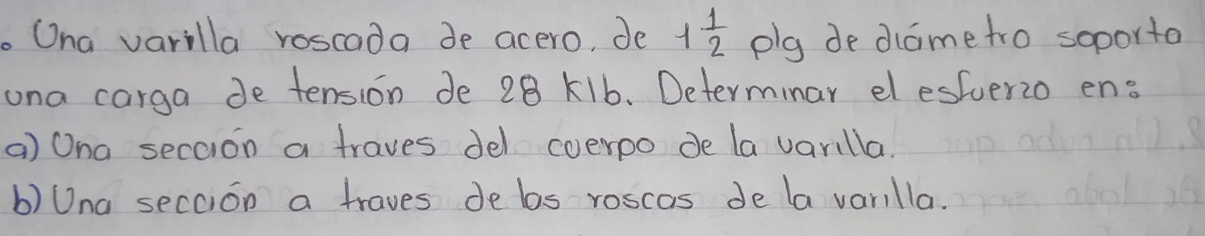 . Una varilla roscada de acero, de 1 1/2 plg de diámetro soporta
una carga de tensión de 28 Klb. Determinar el esfuerzo en:
a) Una sección a traves del cuerpo de la varilla.
b) Una sección a traves de las roscas de la varilla.